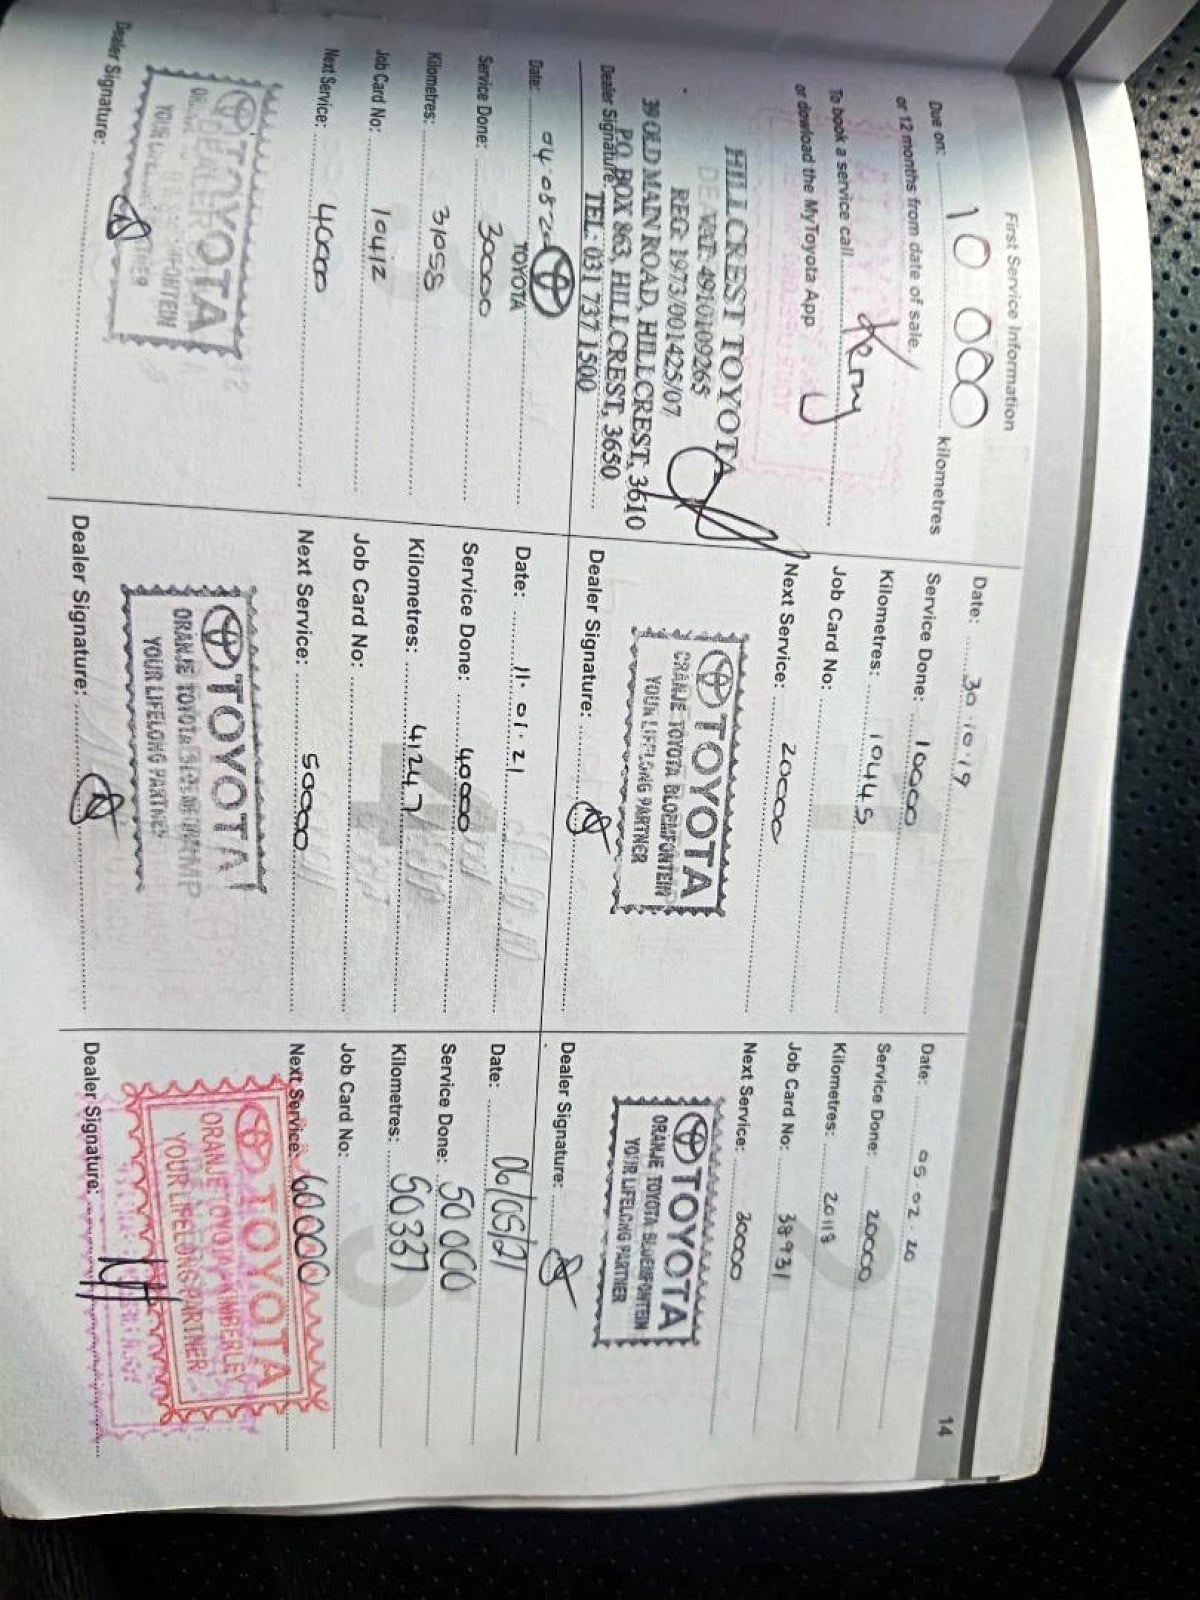 First Service Information
14
Due on: 10 000 kilometres
or 12 months from date of sale.
To book a service call Kerry
or dowload the MyToyota App
HILLCREST TOYOTA
VAT: 4910109265
REG: 1973/001425/07
39 OLD MAIN ROAD, HILLCREST, 3610
P.O. BOX 863, HILLCREST, 3650
TEL: 031 737 1500
Dealer Signature:
Date: 30.10.19
Service Done: 10000
Kilometres: 10445
Job Card No:
Next Service: 20000
TOYOTA
ORANJE TOYOTA BLOEMFONTEIN
YOUR LIFELONG PARTNER
Dealer Signature:
Date: 05.02.20
Service Done: 20000
Kilometres: 20118
Job Card No: 38931
Next Service: 30000
TOYOTA
ORANJE TOYOTA BLOEMFONTEIN
YOUR LIFELONG PARTNER
Dealer Signature:
Date: 04.08.20
TOYOTA
Service Done: 30000
Kilometres: 31058
Job Card No: 10412
Next Service: 40000
TOYOTA
Dealer Signature:
Date: 11.01.21
Service Done: 40000
Kilometres: 41247
Job Card No:
Next Service: 50000
TOYOTA
ORANJE TOYOTA
YOUR LIFELONG PARTNER
Dealer Signature:
Date: 06/05/21
Service Done: 50000
Kilometres: 50337
Job Card No:
Next Service: 60000
TOYOTA
ORANJE TOYOTA KIMBERLEY
YOUR LIFELONG PARTNER
Dealer Signature: